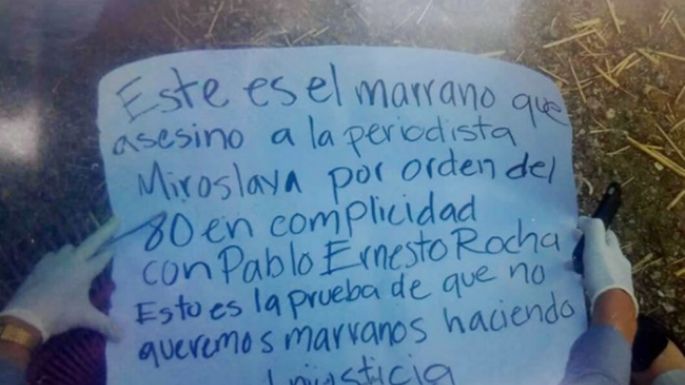 Este es el marrano que
asesino a la periodista
Miroslava por orden del
80 en complicidad
con Pablo Ernesto Rocha
Esto es la prueba de que no
queremos marranos haciendo
Injusticia